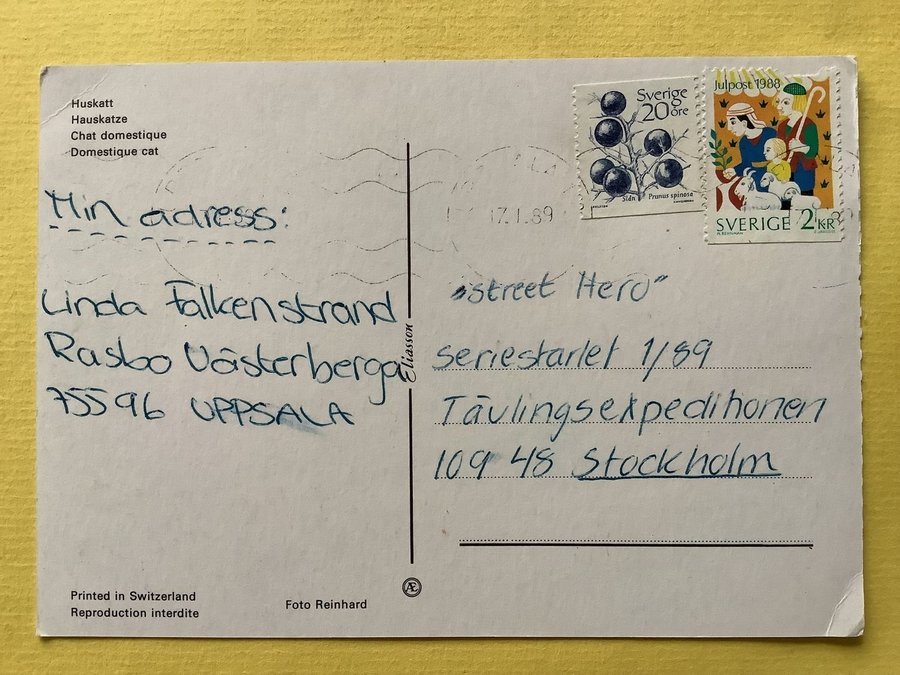 Huskatt
Hauskatze
Chat domestique
Domestique cat
Min adress:
Linda Falkenstrand
Rasbo Västerberga
755 96 UPPSALA
Printed in Switzerland
Reproduction interdite
Foto Reinhard
Eliasson
Æ
17.1.89
Sverige
20 öre
Slån Prunus spinosa
Julpost 1988
SVERIGE 2 KR
"Street Hero"
Seriestarlet 1/89
Tävlingsexpeditionen
109 48 Stockholm